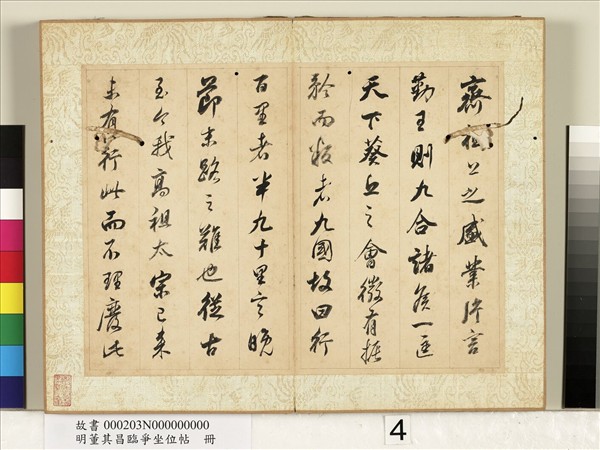 齊桓公之盛業片言
勤王則九合諸侯一匡
天下葵丘之會微有振
矜而叛者九國故曰行
百里者半九十里言晚
節末路之難也從古
至今我高祖太宗已来
未有行此而不理廢此
故書 000203N000000000
明董其昌臨爭坐位帖 冊
4